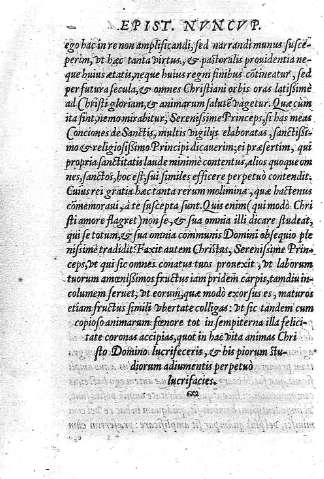 EPIST. NVNCVP.
ego hac in re non amplificandi, sed narrandi munus susce-
perim, vt hac tanta virtus, & pastoralis prouidentia ne-
que huius ætatis, neque huius regni finibus cōtineatur, sed
per futura secula, & omnes Christiani orbis oras latissimè
ad Christi gloriam, & animarum salutē vagetur. Quæ cùm
ita sint, nemo mirabitur, Serenissime Princeps, si has meas
Conciones de Sanctis, multis vigilijs elaboratas, sanctissi-
mo & religiosissimo Principi dicauerim; ei præsertim, qui
propria sanctitatis laude minimè contentus, alios quoque om
nes, sanctos, hoc est, sui similes efficere perpetuò contendit.
Cuius rei gratia hæc tanta rerum molimina, quæ hactenus
cōmemoraui, à te suscepta sunt. Quis enim (qui modò Chri
sti amore flagret) non se, & sua omnia illi dicare studeat,
qui se totum, & sua omnia communis Domini obsequio ple
nissimè tradidit? Faxit autem Christus, Serenissime Prin-
ceps, vt qui sic omnes conatus tuos prouexit, vt laborum
tuorum amœnissimos fructus iam pridem carpis, tamdiu in-
columem seruet, vt eorum, quæ modò exorsus es, maturos
etiam fructus simili vbertate colligas: vt sic tandem cum
copioso animarum fœnore tot in sempiterna illa felici-
tate coronas accipias, quot in hac vita animas Chri
sto Domino lucrifeceris, & his piorum stu-
diorum adiumentis perpetuò
lucrifacies.